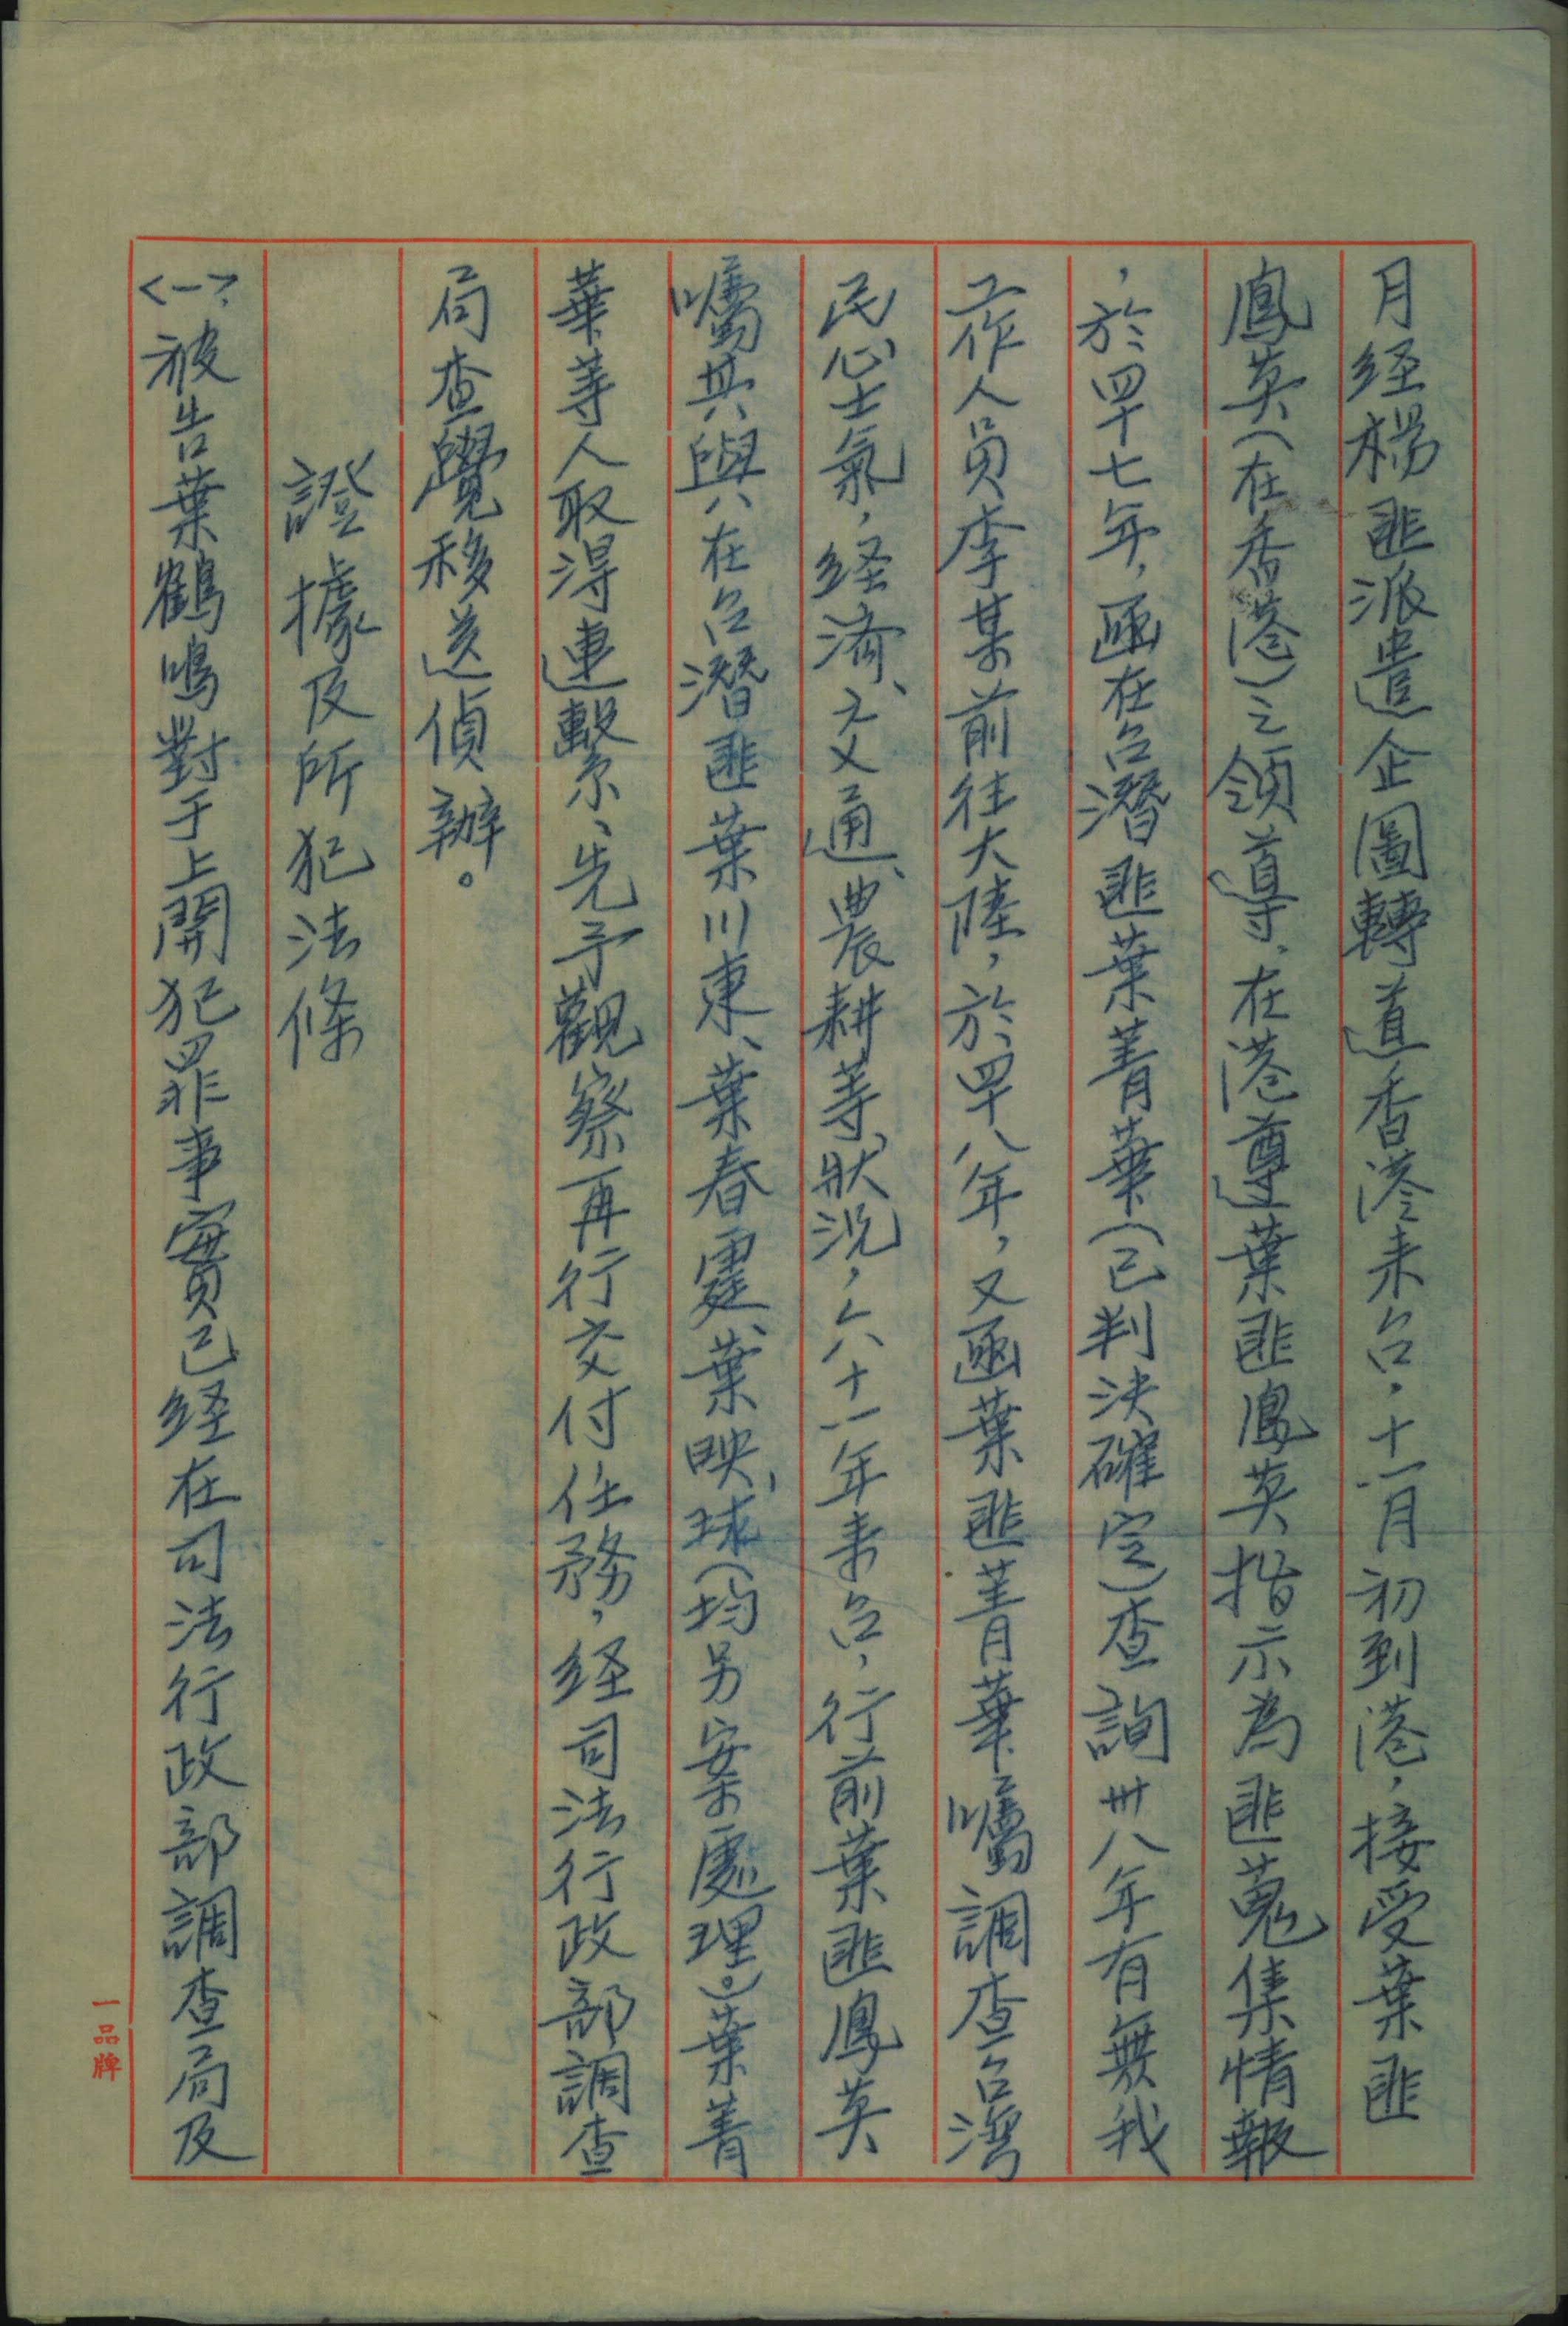 月経楊匪派遣企圖轉道香港来台，十一月初到港，接受葉匪
鳳英（在香港）之領導，在港遵葉匪鳳英指示為匪蒐集情報
，於四十七年，函在台潛匪葉菁華（已判決確定）查詢卅八年有無我
工作人員李某前往大陸，於四十八年，又函葉匪菁華囑調查台灣
民心士氣，経濟、交通、農耕等狀況，六十一年来台，行前葉匪鳳英
囑其與在台潛匪葉川東、葉春霆、葉映球（均另案處理。）葉菁
華等人取得連繫、先予觀察再行交付任務，経司法行政部調查
局查覺移送偵辦。
證據及所犯法條
〈一〉被告葉鶴鳴對于上開犯罪事實已経在司法行政部調查局及
一品牌